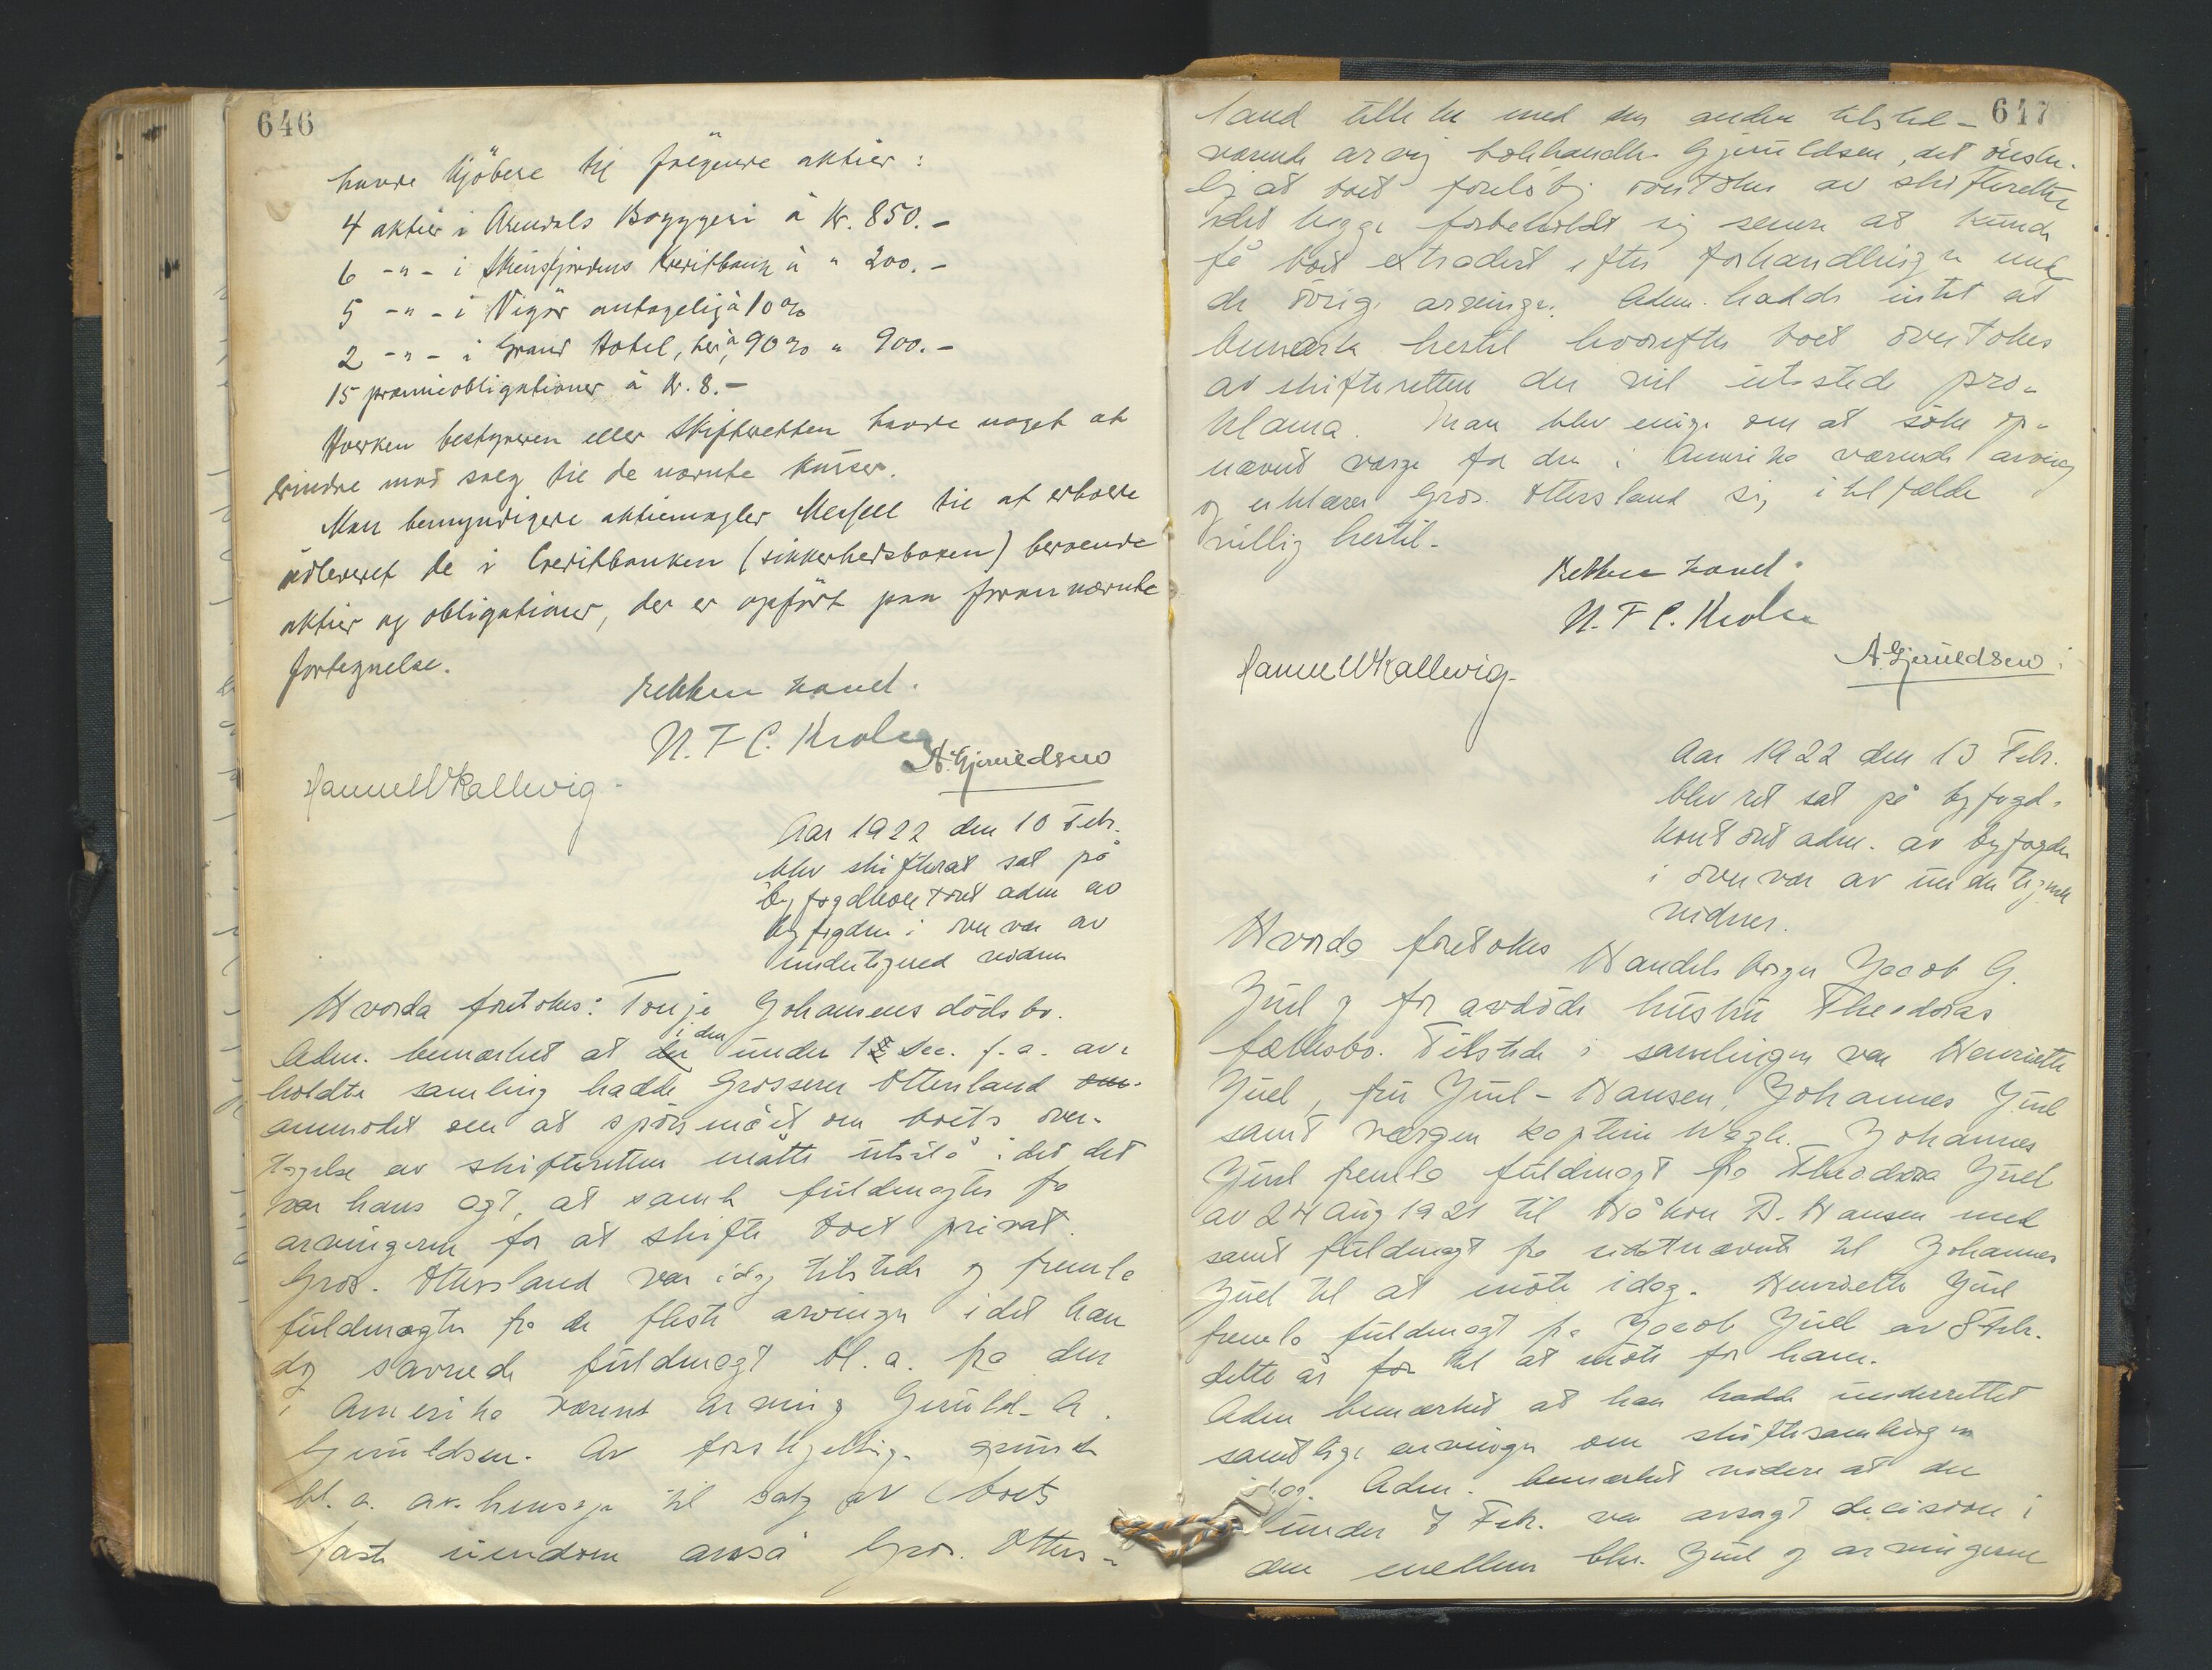 646
havde kjöbere til følgende aktier:
4 aktier i Arendals Bryggeri à Kr. 850.-
6 -"- i Skiensfjordens Kreditbank à " 200.-
5 -"- i Vigör antagelig à 10 %
2 -"- i Grand Hotel, her, à 90 % " 900.-
15 premieobligationer à Kr. 8.-
Hverken bestyreren eller Skifteretten havde noget at
erindre mod salg til de nævnte kurser.
Man bemyndigede aktiemægler til at erholde
udleveret de i Creditbanken (sikkerhedsboxen) beroende
aktier og obligationer, der er opført paa forannævnte
fortegnelse.
Retten hævet.
N. F C. Krohn
A. Gjeruldsen
Hanne W Kallevig.
Aar 1922 den 10 Feb.
blev skifteret sat på
byfogdkontoret adm av
byfogden i overvær av
undertegnede vidner
Hvorda foretokes: Tonje Johansens dödsbo.
Adm. bemærket at i den under 12 Dec. f.a. av-
holdte samling hadde Grosserer Ottersland
anmodet om at spörsmålet om boets over-
tagelse av skifteretten måtte utstå idet det
var hans agt, at samle fuldmagter fra
arvingerne for at skifte boet privat.
Gros. Ottersland var idag tilstede og fremla
fuldmagter fra de fleste arvinger idet han
dog savnede fuldmagt bl.a. fra den
i Amerika værende arving Geruld. A.
Gjeruldsen. Av forskjellige grunde
bl.a. av hensyn til salg av boets
faste eiendom anså Gros. Otters-
647
land tillike med den anden tilsted-
værende arving bokhandler Gjeruldsen, det önske-
lig at boet foreløbig overtokes av skifteretten
idet begge forbeholdt sig senere at kunde
få boet extradert efter forhandlinger med
de övrige arvinger. Adm. hadde intet at
bemerke hertil hvorefter boet overtokes
av skifteretten der vil utstede pro-
klama. Man blev enige om at söke op-
nævnt værge for den i Amerika værende arving
og erklærer Gros. Ottersland sig i tilfælde
villig hertil.
Retten hævet.
N. F C. Krohn
A. Gjeruldsen
Hanne W Kallevig.
Aar 1922 den 13 Feb.
blev ret sat på byfogd-
kontoret adm. av byfogden
i overvær av undertegnede
vidner.
Hvorda foretokes Handelsborger Jacob G.
Juel og for avdöde hustru Theodoras
fællesbo. Tilstede i samlingen var Henriette
Juel, fru Juel-Hansen, Johannes Juel
samt værgen kaptein Wegle. Johannes
Juel fremla fuldmagt fra Theodora Juel
av 24 Aug 1921 til Håkon B. Hansen med
samt fuldmagt fra sidstnævnte til Johannes
Juel til at möte idag. Henriette Juel
fremla fuldmagt fra Jacob Juel av 8 Feb.
dette år for til at möte for ham.
Adm bemærket at han hadde underrettet
samtlige arvinger om skiftesamlingen
idag. Adm. bemærket videre at der
under 7 Feb. var avsagt decision i
den mellem Juel og arvingerne